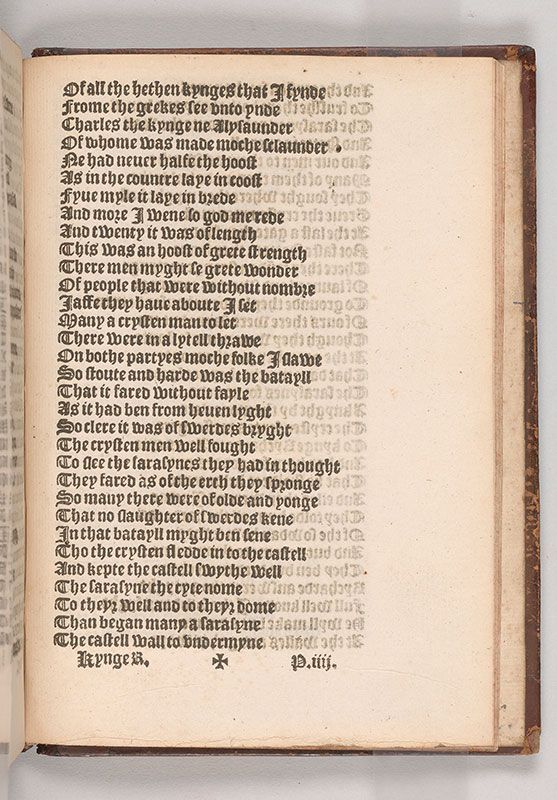 Of all the hethen kynges that I fynde
Frome the grekes see vnto ynde
Charles the kynge ne Alysaunder
Of whome was made moche sclaunder .
Ne had neuer halfe the hoost
As in the countre laye in coost
Fyue myle it laye in brede
And more I wene so god me rede
And twenty it was of length
This was an hoost of grete strength
There men myght se grete wonder
Of people that were without nombre
Jaffe they haue aboute I set
Many a crysten man to let
There were in a lytell thrawe
On bothe partyes moche folke I slawe
So stoute and harde was the batayll
That it fared without fayle
As it had ben from heuen lyght
So clere it was of swerdes bryght
The crysten men well fought
To slee the sarasynes they had in thought
They fared as of the erth they spronge
So many there were of olde and yonge
That no slaughter of swerdes kene
In that batayll myght ben sene
Tho the crysten fledde in to the castell
And kepte the castell swythe well
The sarasyne the cyte nome
To theyr well and to theyr dome
Than began many a sarasyne
The castell wall to vndermyne
Kynge R. ✠ P.iiij.